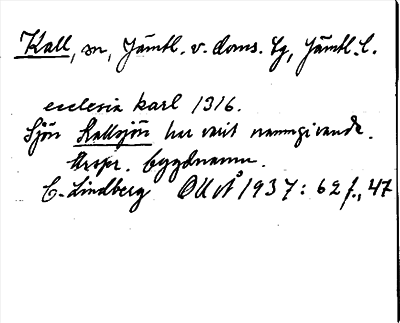 Kall, sn, Jämtl. v. doms. tg, Jämtl. l.
ecclesia karl 1316.
Sjön Kallsjön har varit namngivande.
Urspr. bygdnamn.
C. Lindberg OUÅ 1937: 62 f., 47